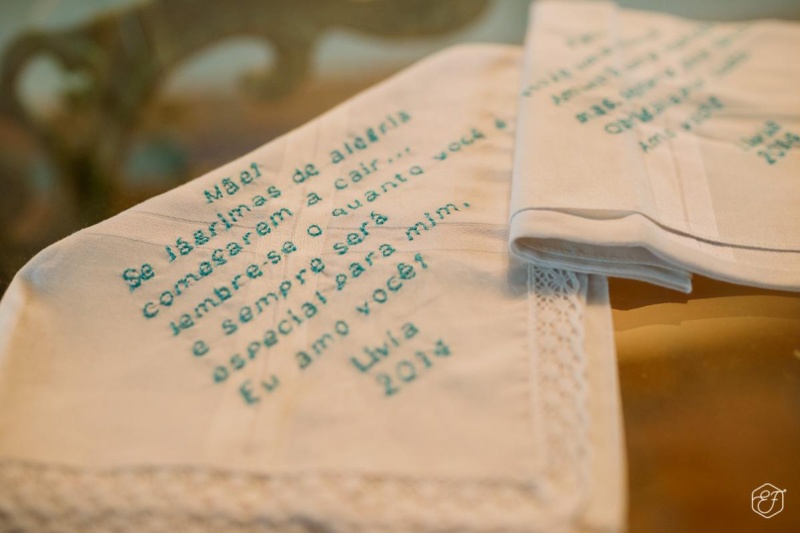 Mãe!
Se lágrimas de alegria
começarem a cair...
lembre-se o quanto você é
e sempre será
especial para mim.
Eu amo você!
Lívia
2014
Amo você
Lívia
2014
EF